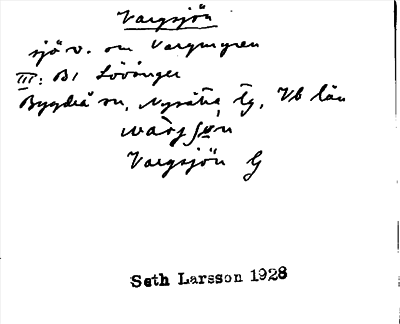 Vargsjön
sjö v. om Vargmyren
III: B1 Lövånger
Bygdeå sn, Nysätra tg, Vb län
Vargsjön G
Seth Larsson 1928